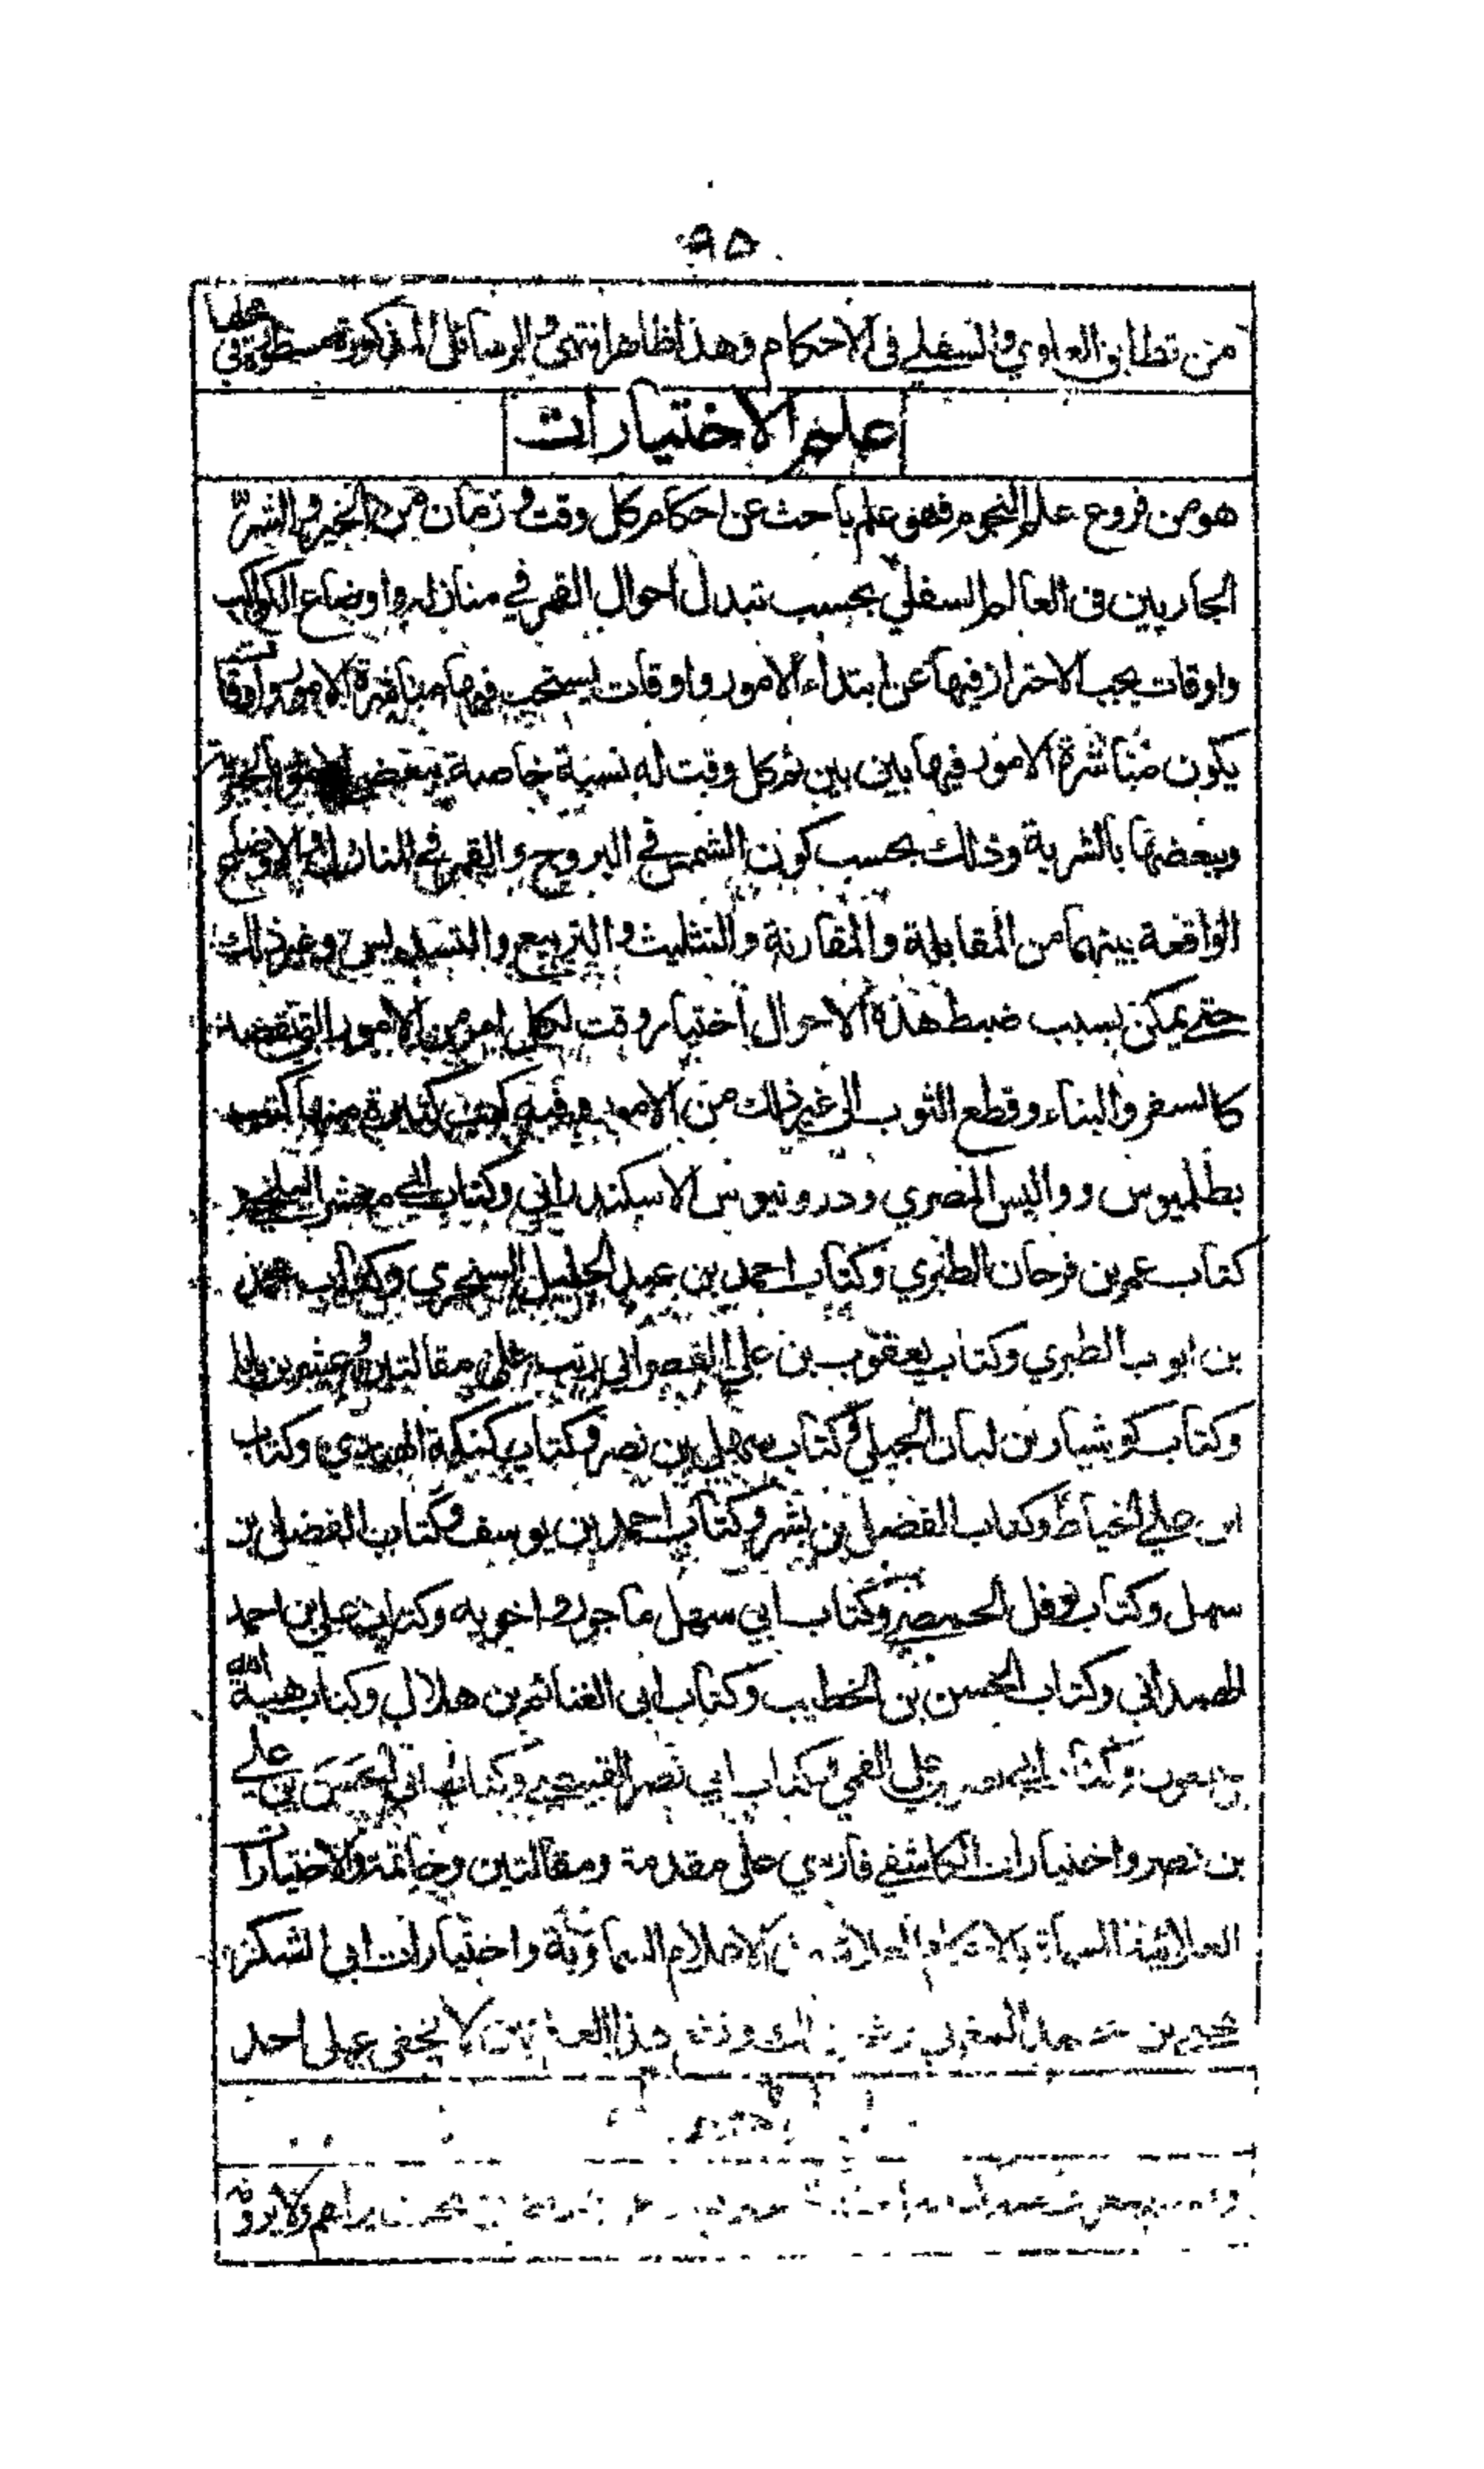 ٩٥
من تطابق العلوي والسفلي في الاحكام وهذا ظاهر انتهى والرسائل المذكورة مسطورة في محلها
علم الاختيارات
هو من فروع علم النجوم فهو علم باحث عن احكام كل وقت وزمان من الخير والشر
الجاريين في العالم السفلي بحسب تبدل احوال القمر في منازله واوضاع الكواكب
واوقات يجب الاحتراز فيها عن ابتداء الامور واوقات يستحب فيها مباشرة الامور واوقات
يكون مباشرة الامور فيها بين بين ثم كل وقت له نسبة خاصة ببعض بالخيرية
وببعضها بالشرية وذلك بحسب كون الشمس في البروج والقمر في المنازل والاوضاع
الواقعة بينهما من المقابلة والمقارنة والتثليث والتربيع والتسديس وغير ذلك
حتى يمكن بسبب ضبط هذه الاحوال اختيار وقت لكل امر من الامور التي تقصد
كالسفر والبناء وقطع الثوب الى غير ذلك من الامور وفيه كتب كثيرة منها كتب
بطلميوس وواليس المصري ودرونيوس الاسكندراني وكتاب ابي معشر البلخي
كتاب عمر بن فرحان الطبري وكتاب احمد بن عبد الجليل السنجري وكتاب محمد
بن ايوب الطبري وكتاب يعقوب بن علي القصراني رتب على مقالتين وعشرين بابا
وكتاب كوشيار بن لبان الجيلي وكتاب سهل بن نصر وكتاب كنكه الهندي وكتاب
ابن علي الخياط وكتاب الفضل بن بشر وكتاب احمد بن يوسف وكتاب الفضل بن
سهل وكتاب نوفل الحمصي وكتاب ابي سهل ماجور واخويه وكتاب علي بن احمد
الهمداني وكتاب الحسن بن الخطيب وكتاب ابي الغنائم بن هلال وكتاب هبة الله
بن شمعون وكتاب ابي نصر بن علي القمي وكتاب ابي نصر القبيصي وكتاب ابي الحسن بن علي
بن نصر واختيارات الكاشفي فارسي على مقدمة ومقالتين وخاتمة والاختيارات
العلائية المسماة بالاحكام العلائية في الاعلام السماوية واختيارات ابي الشكر
يحيى بن محمد المغربي هذا العلم بين لا يخفى على احد
براهيم ولا يروق